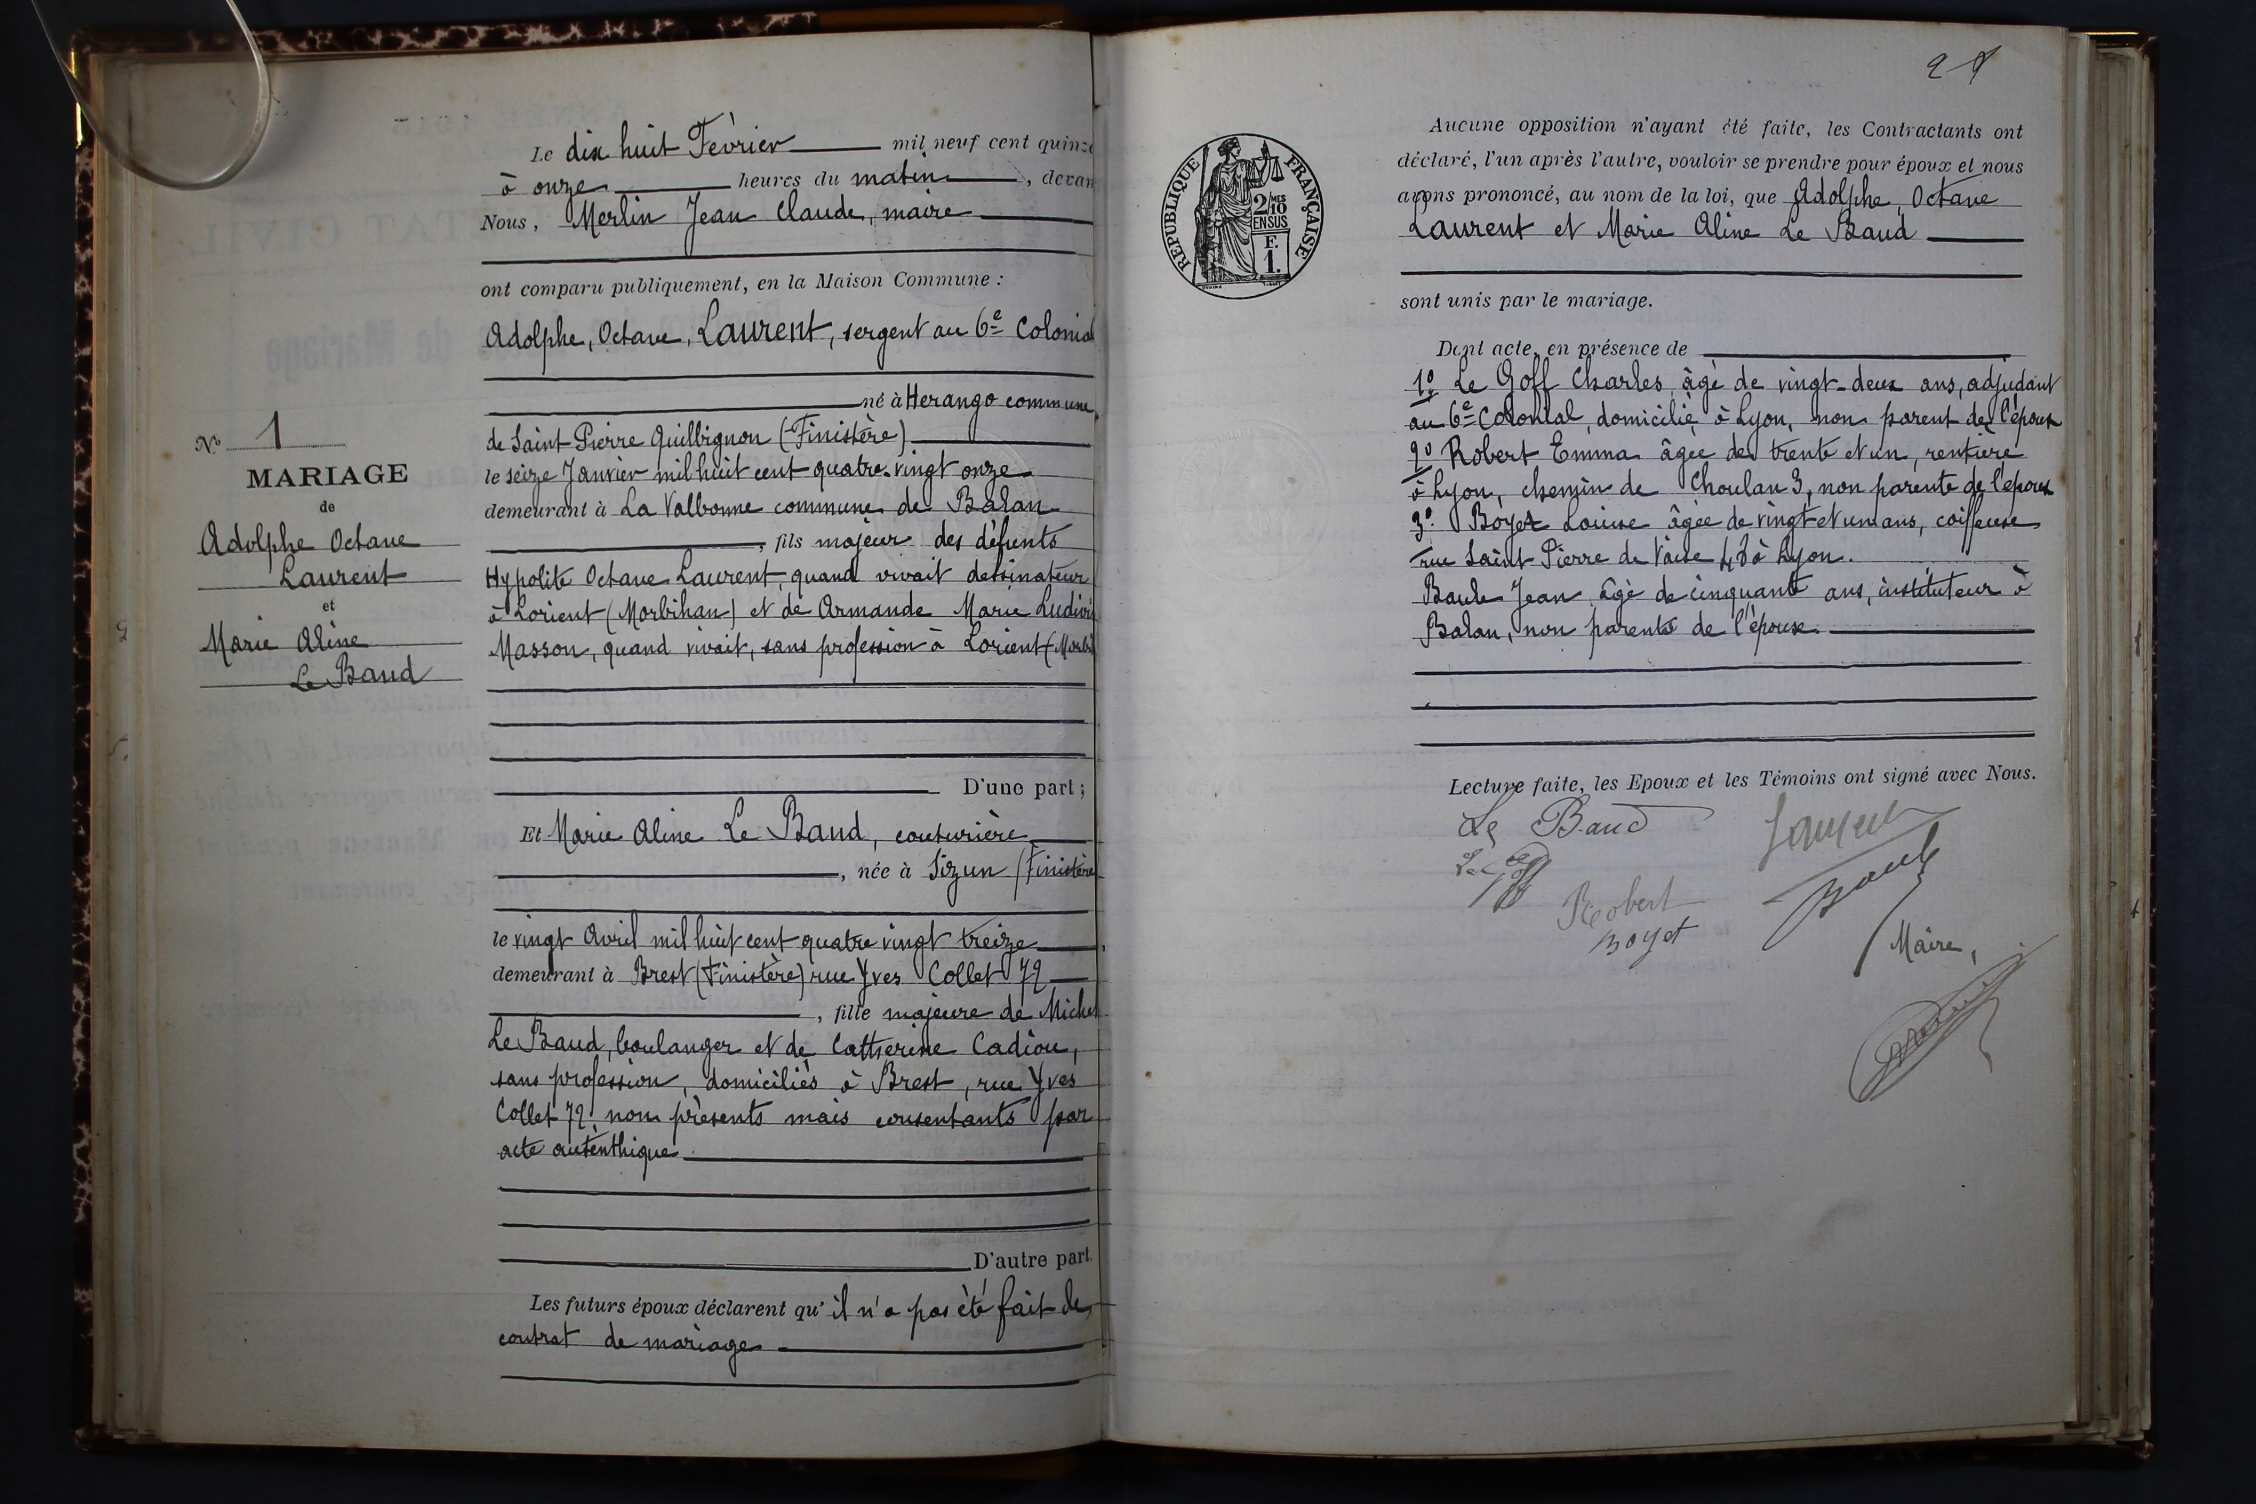 Le dix huit Février mil neuf cent quinze
à onze heures du matin, devan
Nous, Merlin Jean Claude, maire
ont comparu publiquement, en la Maison Commune :
Adolphe, Octave, Laurent, sergent au 6e Colonial
né à Herango commune
de Saint Pierre Quilbignon (Finistère)
le seize Janvier mil huit cent quatre-vingt onze
demeurant à La Valbonne commune de Balan
, fils majeur des défunts
Hypolite Octave Laurent, quand vivait dessinateur
à Lorient (Morbihan) et de Armande Marie Ludivi
Masson, quand vivait, sans profession à Lorient (Morbi
D'une part ;
Et Marie Aline Le Baud, couturière
, née à Sizun (Finistère
le vingt Avril mil huit cent quatre vingt treize
demeurant à Brest (Finistère) rue Yves Collet 72
, fille majeure de Michel
Le Baud, boulanger et de Catherine Cadiou,
sans profession, domiciliés à Brest, rue Yves
Collet 72 non présents mais consentants par
acte autenthique
D'autre part.
Les futurs époux déclarent qu' il n'a pas été fait de
contrat de mariage
No 1
MARIAGE
de
Adolphe Octave
Laurent
et
Marie Aline
Le Baud
2
REPUBLIQUE FRANÇAISE
2/10 MES
EN SUS
F.
1.
Aucune opposition n'ayant été faite, les Contractants ont
déclaré, l'un après l'autre, vouloir se prendre pour époux et nous
avons prononcé, au nom de la loi, que Adolphe, Octave
Laurent et Marie Aline Le Baud
sont unis par le mariage.
Dont acte, en présence de
1o Le Goff Charles, âgé de vingt-deux ans, adjudant
au 6e Colonial, domicilié à Lyon, non parent de l'époux
2o Robert Emma âgée de trente et un, rentière
à Lyon, chemin de Choulan 3, non parente de l'époux
3o Boyet Louise âgée de vingt et un ans, coiffeuse
rue Saint Pierre de Vaise à Lyon.
Baule Jean âgé de cinquante ans, instituteur à
Balan, non parents de l'épouse
Lecture faite, les Epoux et les Témoins ont signé avec Nous.
Le Baud
Laurent
Le Goff
Baule
Robert
Boyet
Maire,